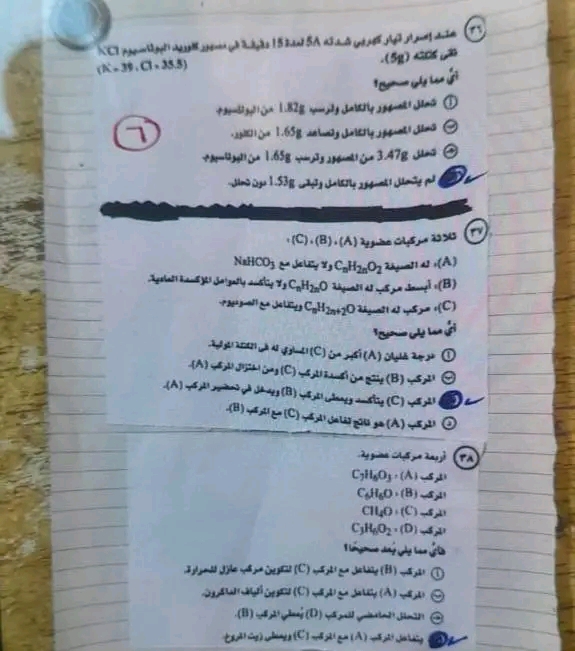 ٣٦ عند إمرار تيار كهربي شدته 5A لمدة 15 دقيقة في مصهور كلوريد البوتاسيوم KCl
نقى كتلته (5g). (K = 39 , Cl = 35.5)
أيٌّ مما يلي صحيح؟
أ تحلل المصهور بالكامل وترسب 1.82g من البوتاسيوم.
ب تحلل المصهور بالكامل وتصاعد 1.65g من الكلور.
ج تحلل 3.47g من المصهور وترسب 1.65g من البوتاسيوم.
لم يتحلل المصهور بالكامل وتبقى 1.53g دون تحلل.
٦
٣٧ ثلاثة مركبات عضوية (A) ، (B) ، (C) :
(A): له الصيغة CnH2nO2 ولا يتفاعل مع NaHCO3
(B): أبسط مركب له الصيغة CnH2nO ولا يتأكسد بالعوامل المؤكسدة العادية.
(C): مركب له الصيغة CnH2n+2O ويتفاعل مع الصوديوم.
أيٌّ مما يلي صحيح؟
أ درجة غليان (A) أكبر من (C) المساوي له في الكتلة المولية.
ب المركب (B) ينتج من أكسدة المركب (C) ومن اختزال المركب (A).
المركب (C) يتأكسد ويعطى المركب (B) ويدخل في تحضير المركب (A).
د المركب (A) هو ناتج تفاعل المركب (C) مع المركب (B).
٣٨ أربعة مركبات عضوية.
المركب (A) : C7H6O3
المركب (B) : C6H6O
المركب (C) : CH4O
المركب (D) : C3H6O2
فأيٌّ مما يلي يُعد صحيحًا؟
أ المركب (B) يتفاعل مع المركب (C) لتكوين مركب عازل للحرارة.
ب المركب (A) يتفاعل مع المركب (C) لتكوين ألياف الداكرون.
ج التحلل الحامضي للمركب (D) يُعطي المركب (B).
يتفاعل المركب (A) مع المركب (C) ويعطي زيت المروخ.